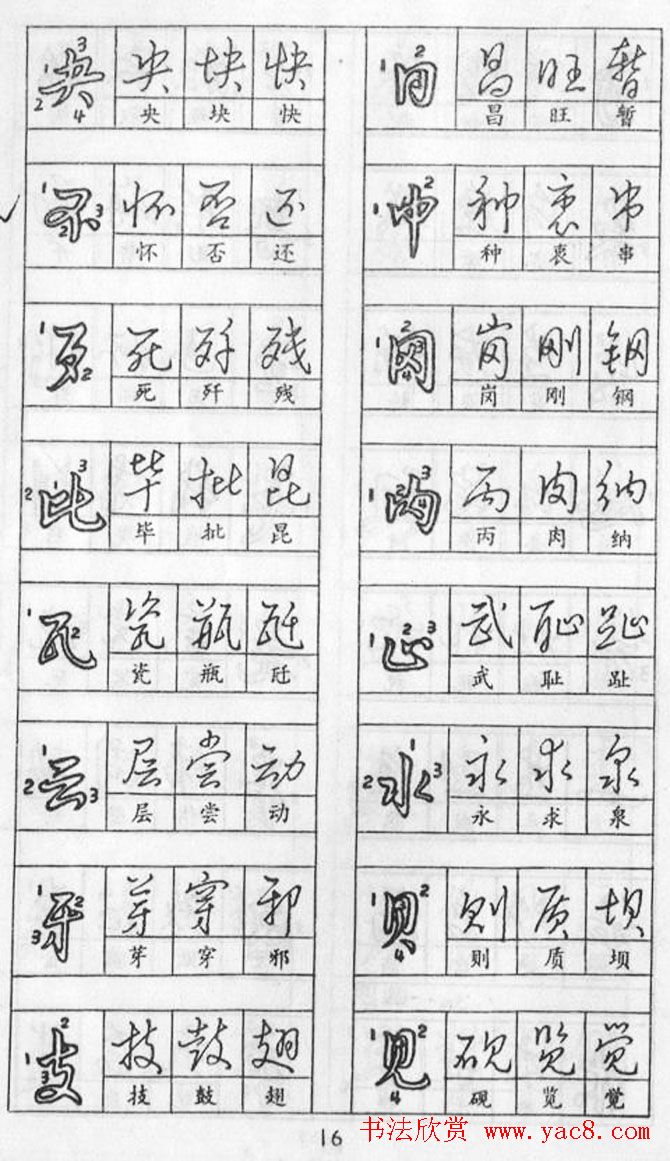 央 央 块 快
央 块 快
不 怀 否 还
怀 否 还
歹 死 歼 残
死 歼 残
比 毕 批 昆
毕 批 昆
瓦 瓷 瓶
瓷 瓶
云 层 尝 动
层 尝 动
牙 芽 穿 邪
芽 穿 邪
支 技 鼓 翅
技 鼓 翅
日 昌 旺 暂
昌 旺 暂
中 种 衷 串
种 衷 串
冈 岗 刚 钢
岗 刚 钢
内 丙 肉 纳
丙 肉 纳
止 武 耻 趾
武 耻 趾
水 永 求 泉
永 求 泉
贝 则 质 坝
则 质 坝
见 砚 览 觉
砚 览 觉
16
书法欣赏 www.yac8.com